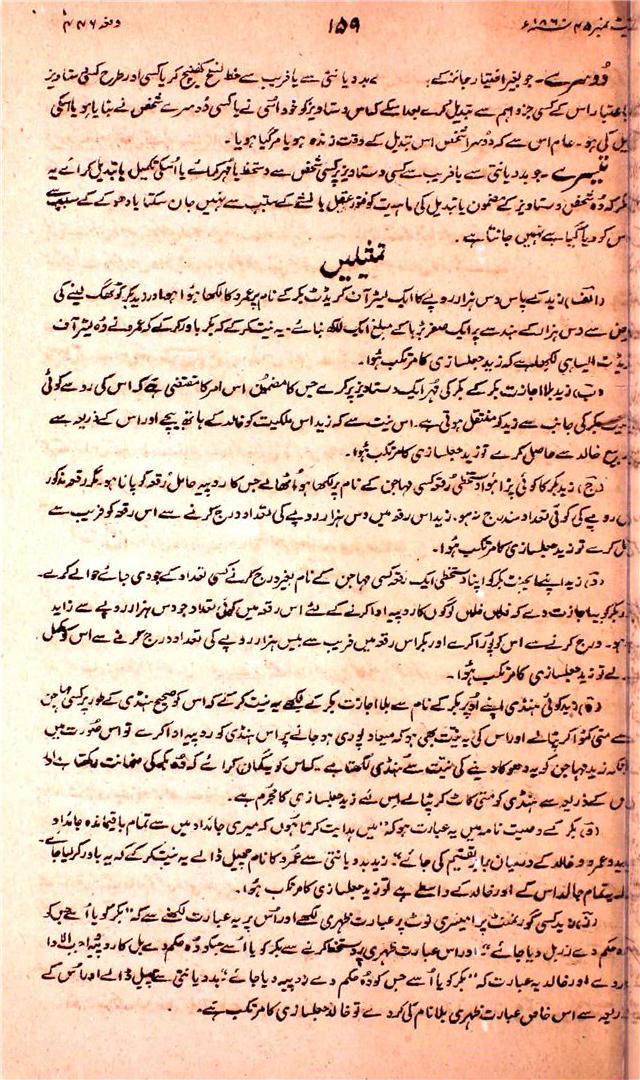 ایکٹ نمبر ۴۵ ۱۸۶۰ء ۱۵۹ دفعہ ۴۴۶
دوسرے ۔ جو بغیر اختیار جائز کے بددیانتی سے یا فریب سے خط نسخ کھینچ کر یا کسی اور طرح کسی دستاویز
با عتبار اس کے کسی جزو اہم سے تبدیل کرے بعد اسکے کہ اس دستاویز کو خود اسی نے یا کسی دوسرے شخص نے بنایا ہو یا اسکی
یل کی ہو ۔ عام اس سے کہ دوسرا شخص اس تبدیل کے وقت زندہ ہو یا مر گیا ہو یا ۔
تیسرے ۔ جو بددیانتی سے یا فریب سے کسی دستاویز پر کسی شخص سے دستخط یا مہر کرائے یا اسکی تکمیل یا تبدیل کرائے یہ
کر کہ وہ شخص دستاویز کے مضمون یا تبدیل کی ماہیت کو فتور عقل یا نشے کے سبب سے نہیں جان سکتا یا دھوکے کے سبب سے
اس کو دیا گیا ہے نہیں جانتا ہے ۔
تمثیلیں
(الف) زید کے پاس دس ہزار روپے کا ایک لیٹر آف کریڈٹ بکر کے نام پر عمرو کا لکھا ہوا ہو اور زید بکر کو ٹھگ لینے کی
غرض سے دس ہزار کے ہندسے پر ایک صفر بڑہا کے مبلغ ایک لکھ بنائے ۔ یہ نیت کر کے کہ بکر باور کرے کہ عمرو نے وہ لیٹر آف
کریڈٹ ایسا ہی لکھا ہے کہ زید جعلسازی کا مرتکب ہوا ۔
(ب) زید بلا اجازت بکر کے بکر کی مہر ایک دستاویز پر کرے جس کا مضمون اس امر کا مقتضی ہے کہ اس کی رو سے کوئی
بکر کی جانب سے زید کو منتقل ہوتی ہے ۔ اس نیت سے کہ زید اس ملکیت کو خالد کے ہاتھ بیچے اور اس کے ذریعہ سے
بیع خالد سے حاصل کرے تو زید جعلسازی کا مرتکب ہوا ۔
(ج) زید بکر کا کوئی پڑا ہوا دستخطی رقعہ کسی مہاجن کے نام پر لکھا ہوا اٹھالے جس کا روپیہ حامل رقعہ کو پانا ہو ۔ مگر رقعہ مذکور
میں روپے کی کوئی تعداد مندرج نہ ہو ۔ زید اس رقعہ میں دس ہزار روپے کی تعداد درج کرنے سے اس رقعہ کو فریب سے
مل کرے تو زید جعلسازی کا مرتکب ہوا ۔
(د) زید اپنے ایجنٹ بکر کو اپنا دستخطی ایک رقعہ کسی مہاجن کے نام بغیر درج کرنے کسی تعداد کے جو دی جائے حوالے کرے ۔
اور بکر کو یہ اجازت دے کہ فلاں فلاں لوگوں کا روپیہ ادا کرنے کے لئے اس رقعہ میں کوئی تعداد جو دس ہزار روپے سے زاید
نہ ہو ۔ درج کرنے سے اس کو پورا کرے اور بکر اس رقعہ میں فریب سے بیس ہزار روپے کی تعداد درج کرنے سے اس کو مکمل
کرلے تو زید جعلسازی کا مرتکب ہوا ۔
(ہ) زید کوئی ہنڈی اپنے اوپر بکر کے نام سے بلا اجازت بکر کے لکھے یہ نیت کر کے کہ اس کو صحیح ہنڈی کے طور پر کسی مہاجن
سے متی کٹوا کر پٹالے اور اس کی یہ نیت بھی ہو کہ میعاد پوری ہو جانے پر اس ہنڈی کو روپیہ ادا کرے تو اس صورت میں
چونکہ زید مہاجن کو یہ دھوکا دینے کی نیت سے ہنڈی لکھتا ہے کہ اس کو یہ گمان کرائے کہ وہ بکر کی ضمانت رکھتا ہے اور
اس کے ذریعہ سے ہنڈی کو متی کاٹ کر پٹالے اس لئے زید جعلسازی کا مجرم ہے ۔
(و) بکر کے وصیت نامہ میں یہ عبارت ہو کہ "میں ہدایت کرتا ہوں کہ میری جائداد میں سے تمام باقیماندہ جائداد
زید و عمرو و خالد کے درمیان برابر تقسیم کی جائے" ۔ زید بددیانتی سے عمرو کا نام چھیل ڈالے یہ نیت کر کے کہ یہ باور کر لیا جائے
کہ یہ تمام جائداد اس کے اور خالد کے واسطے ہے تو زید جعلسازی کا مرتکب ہوا ۔
(ز) زید کسی گورنمنٹ پرامیسری نوٹ پر عبارت ظہری لکھے اور اس پر یہ عبارت لکھنے سے کہ "بکر کو یا اسے جس کو
وہ حکم دے زر بل دیا جائے" اور اس عبارت ظہری پر دستخط کرنے سے بکر کو یا اسے جس کو وہ حکم دے بل کا روپیہ واجب الادا
کر دے اور خالد یہ عبارت کہ "بکر کو یا اسے جس کو وہ حکم دے روپیہ دیا جائے" بددیانتی سے چھیل ڈالے اور اس کے
ذریعہ سے اس خاص عبارت ظہری بلا نام کی کر دے تو خالد جعلسازی کا مرتکب ہے ۔